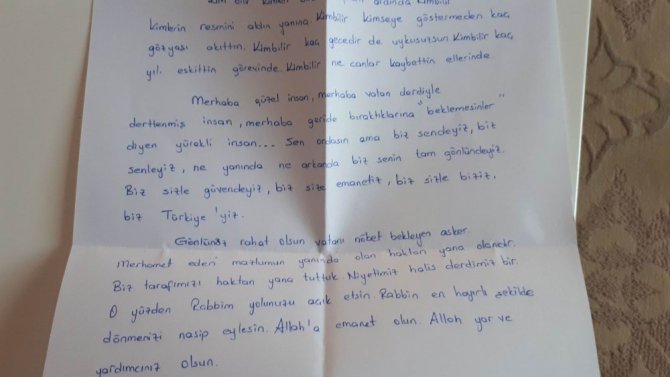 kimlerin resmini aldın yanına. Kimbilir kimseye göstermeden kaç
gözyaşı akıttın. Kimbilir kaç gecedir de uykusuzsun. Kimbilir kaç
yılı eskittin görevinde. Kimbilir ne canlar kaybettin ellerinde
Merhaba güzel insan, merhaba vatan derdiyle
dertlenmiş insan, merhaba geride bıraktıklarına "beklemesinler"
diyen yürekli insan... Sen ordasın ama biz sendeyiz, biz
senleyiz, ne yanında ne arkanda biz senin tam gönlündeyiz.
Biz sizle güvendeyiz, biz size emanetiz, biz sizle biziz,
biz Türkiye'yiz.
Gönlünüz rahat olsun vatanı nöbet bekleyen asker.
Merhamet eden mazlumun yanında olan haktan yana olandır.
Biz tarafımızı haktan yana tuttuk. Niyetimiz halis derdimiz bir.
O yüzden Rabbim yolunuzu açık etsin. Rabbin en hayırlı şekilde
dönmenizi nasip eylesin. Allah'a emanet olun. Allah yar ve
yardımcınız olsun.